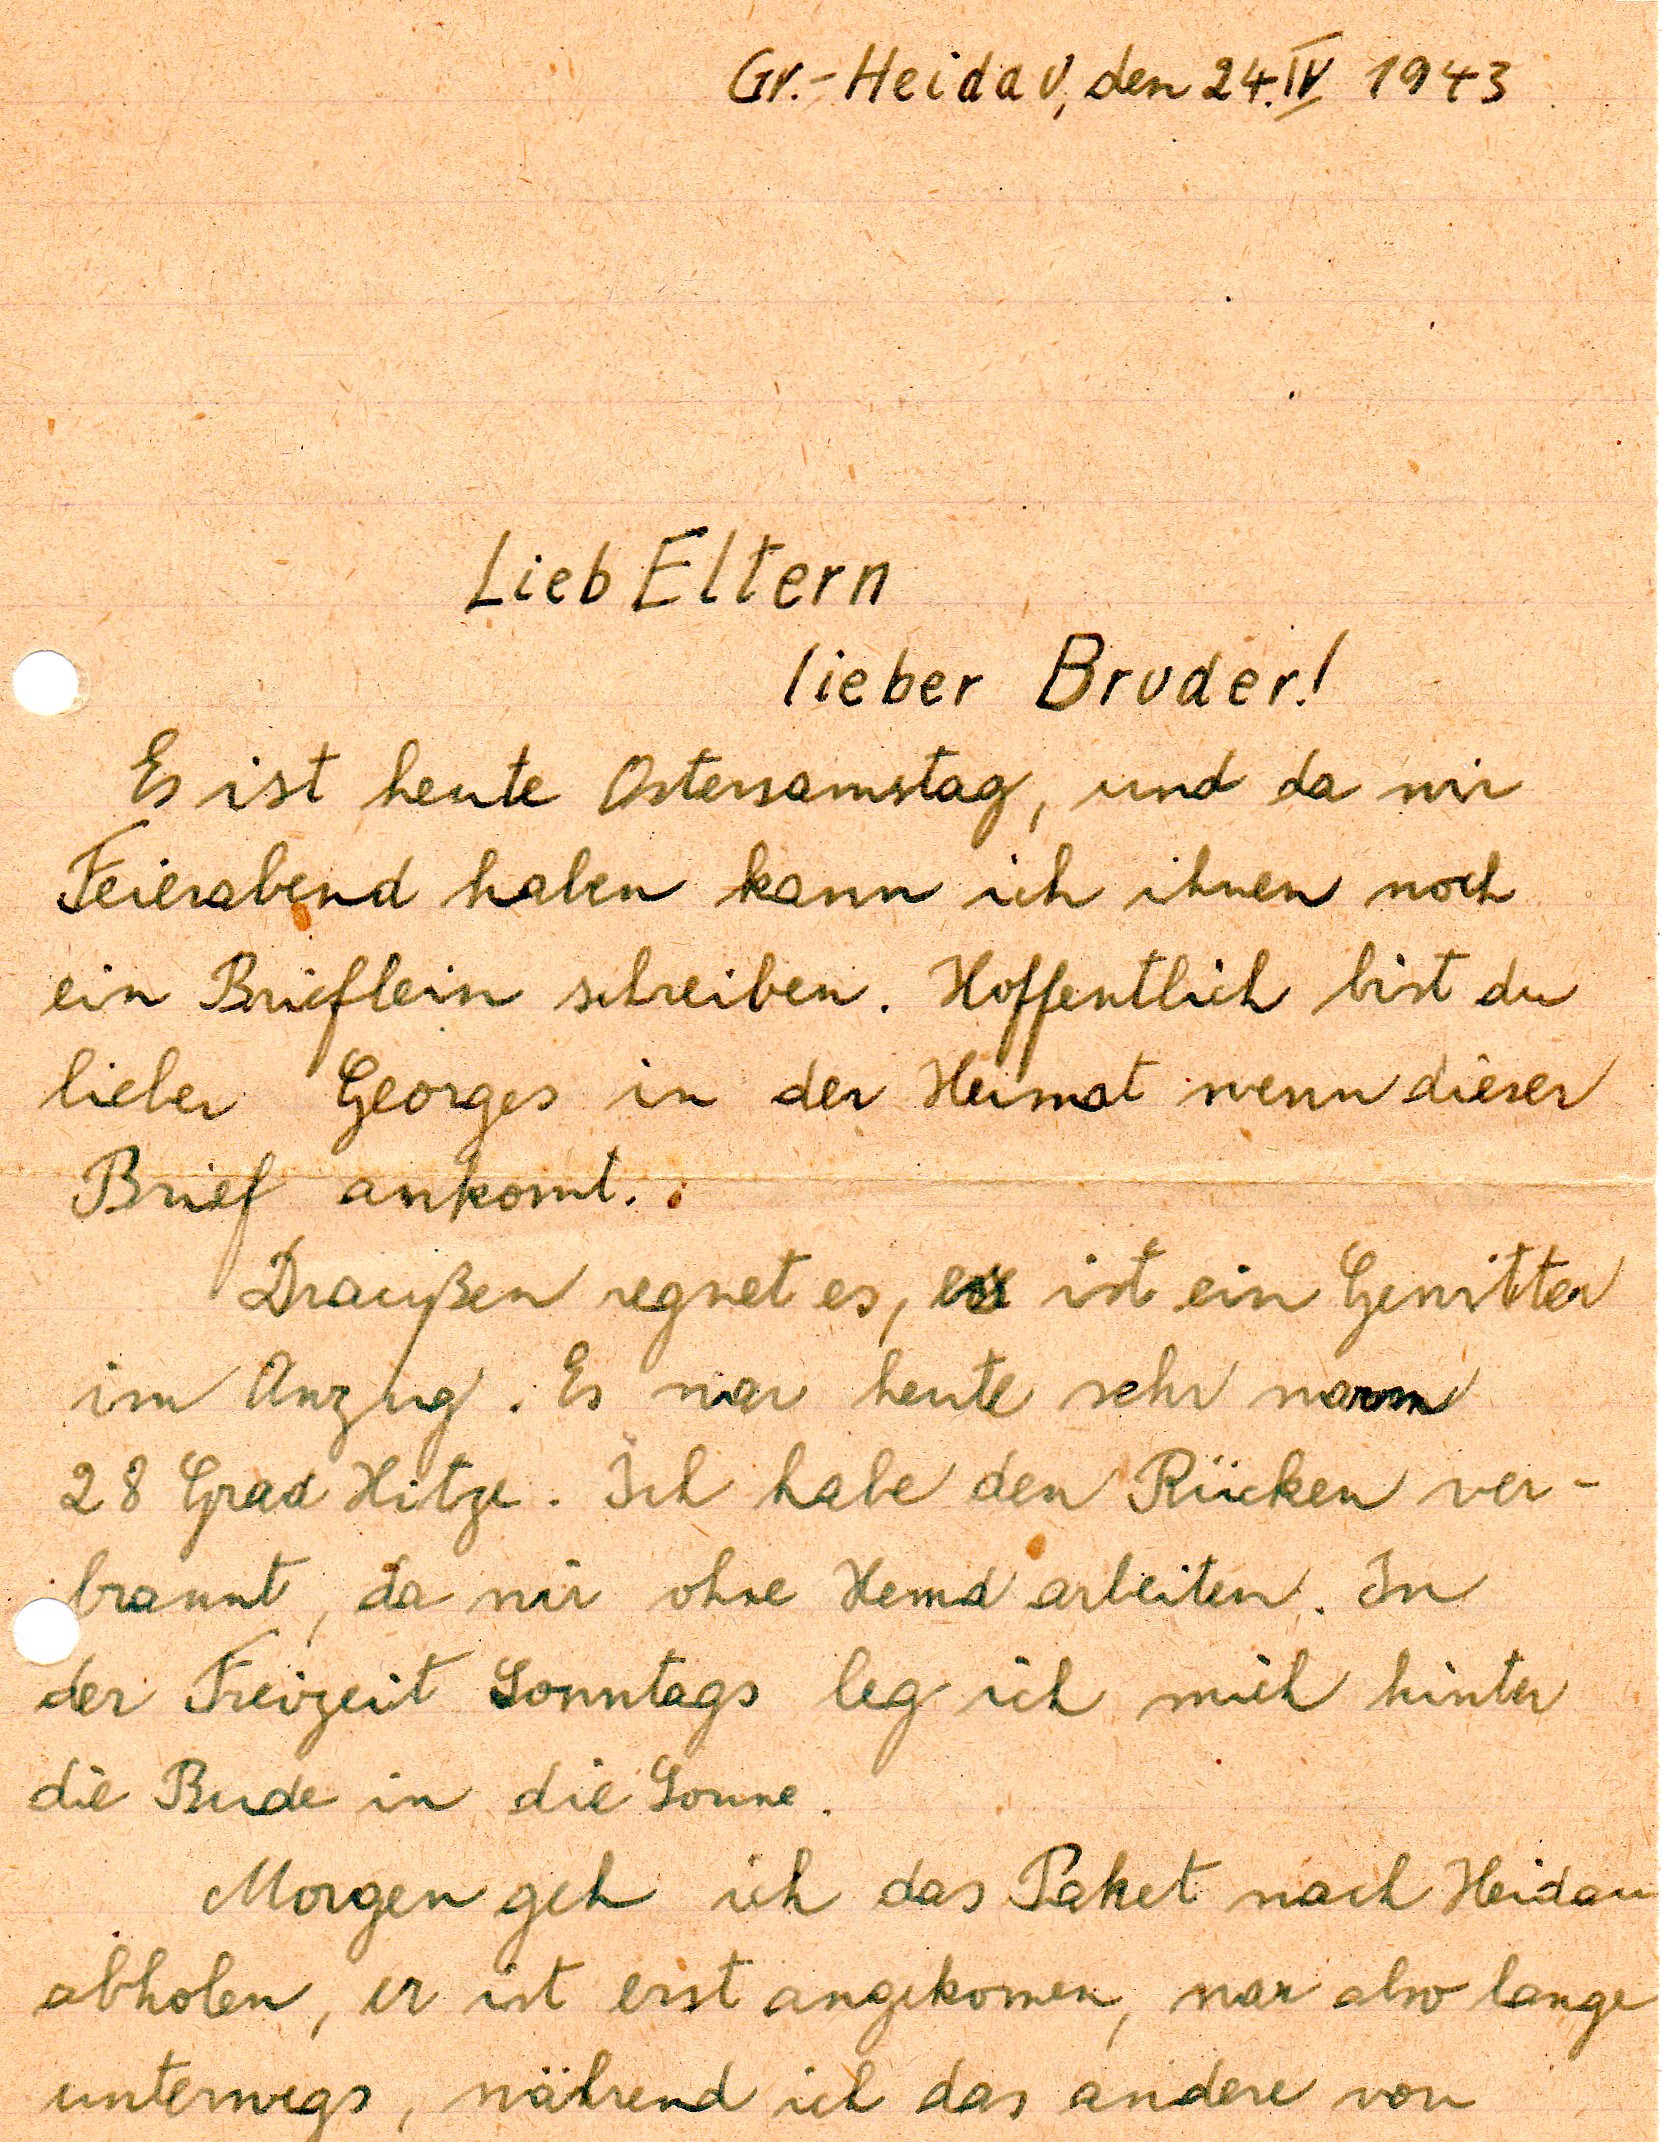 Gr.-Heidau, den 24.IV 1943
Lieb Eltern
lieber Bruder!
Es ist heute Ostersamstag, und da wir
Feierabend haben kann ich ihnen noch
ein Brieflein schreiben. Hoffentlich bist du
lieber Georges in der Heimat wenn dieser
Brief ankomt.
Draußen regnet es, es ist ein Gewitter
im Anzug. Es war heute sehr warm
28 Grad Hitze. Ich habe den Rücken ver-
brannt, da wir ohne Hemd arbeiten. In
der Freizeit Sonntags leg ich mich hinter
die Bude in die Sonne.
Morgen geh ich das Paket nach Heidau
abholen, er ist erst angekomen, war also lange
unterwegs, während ich das andere von